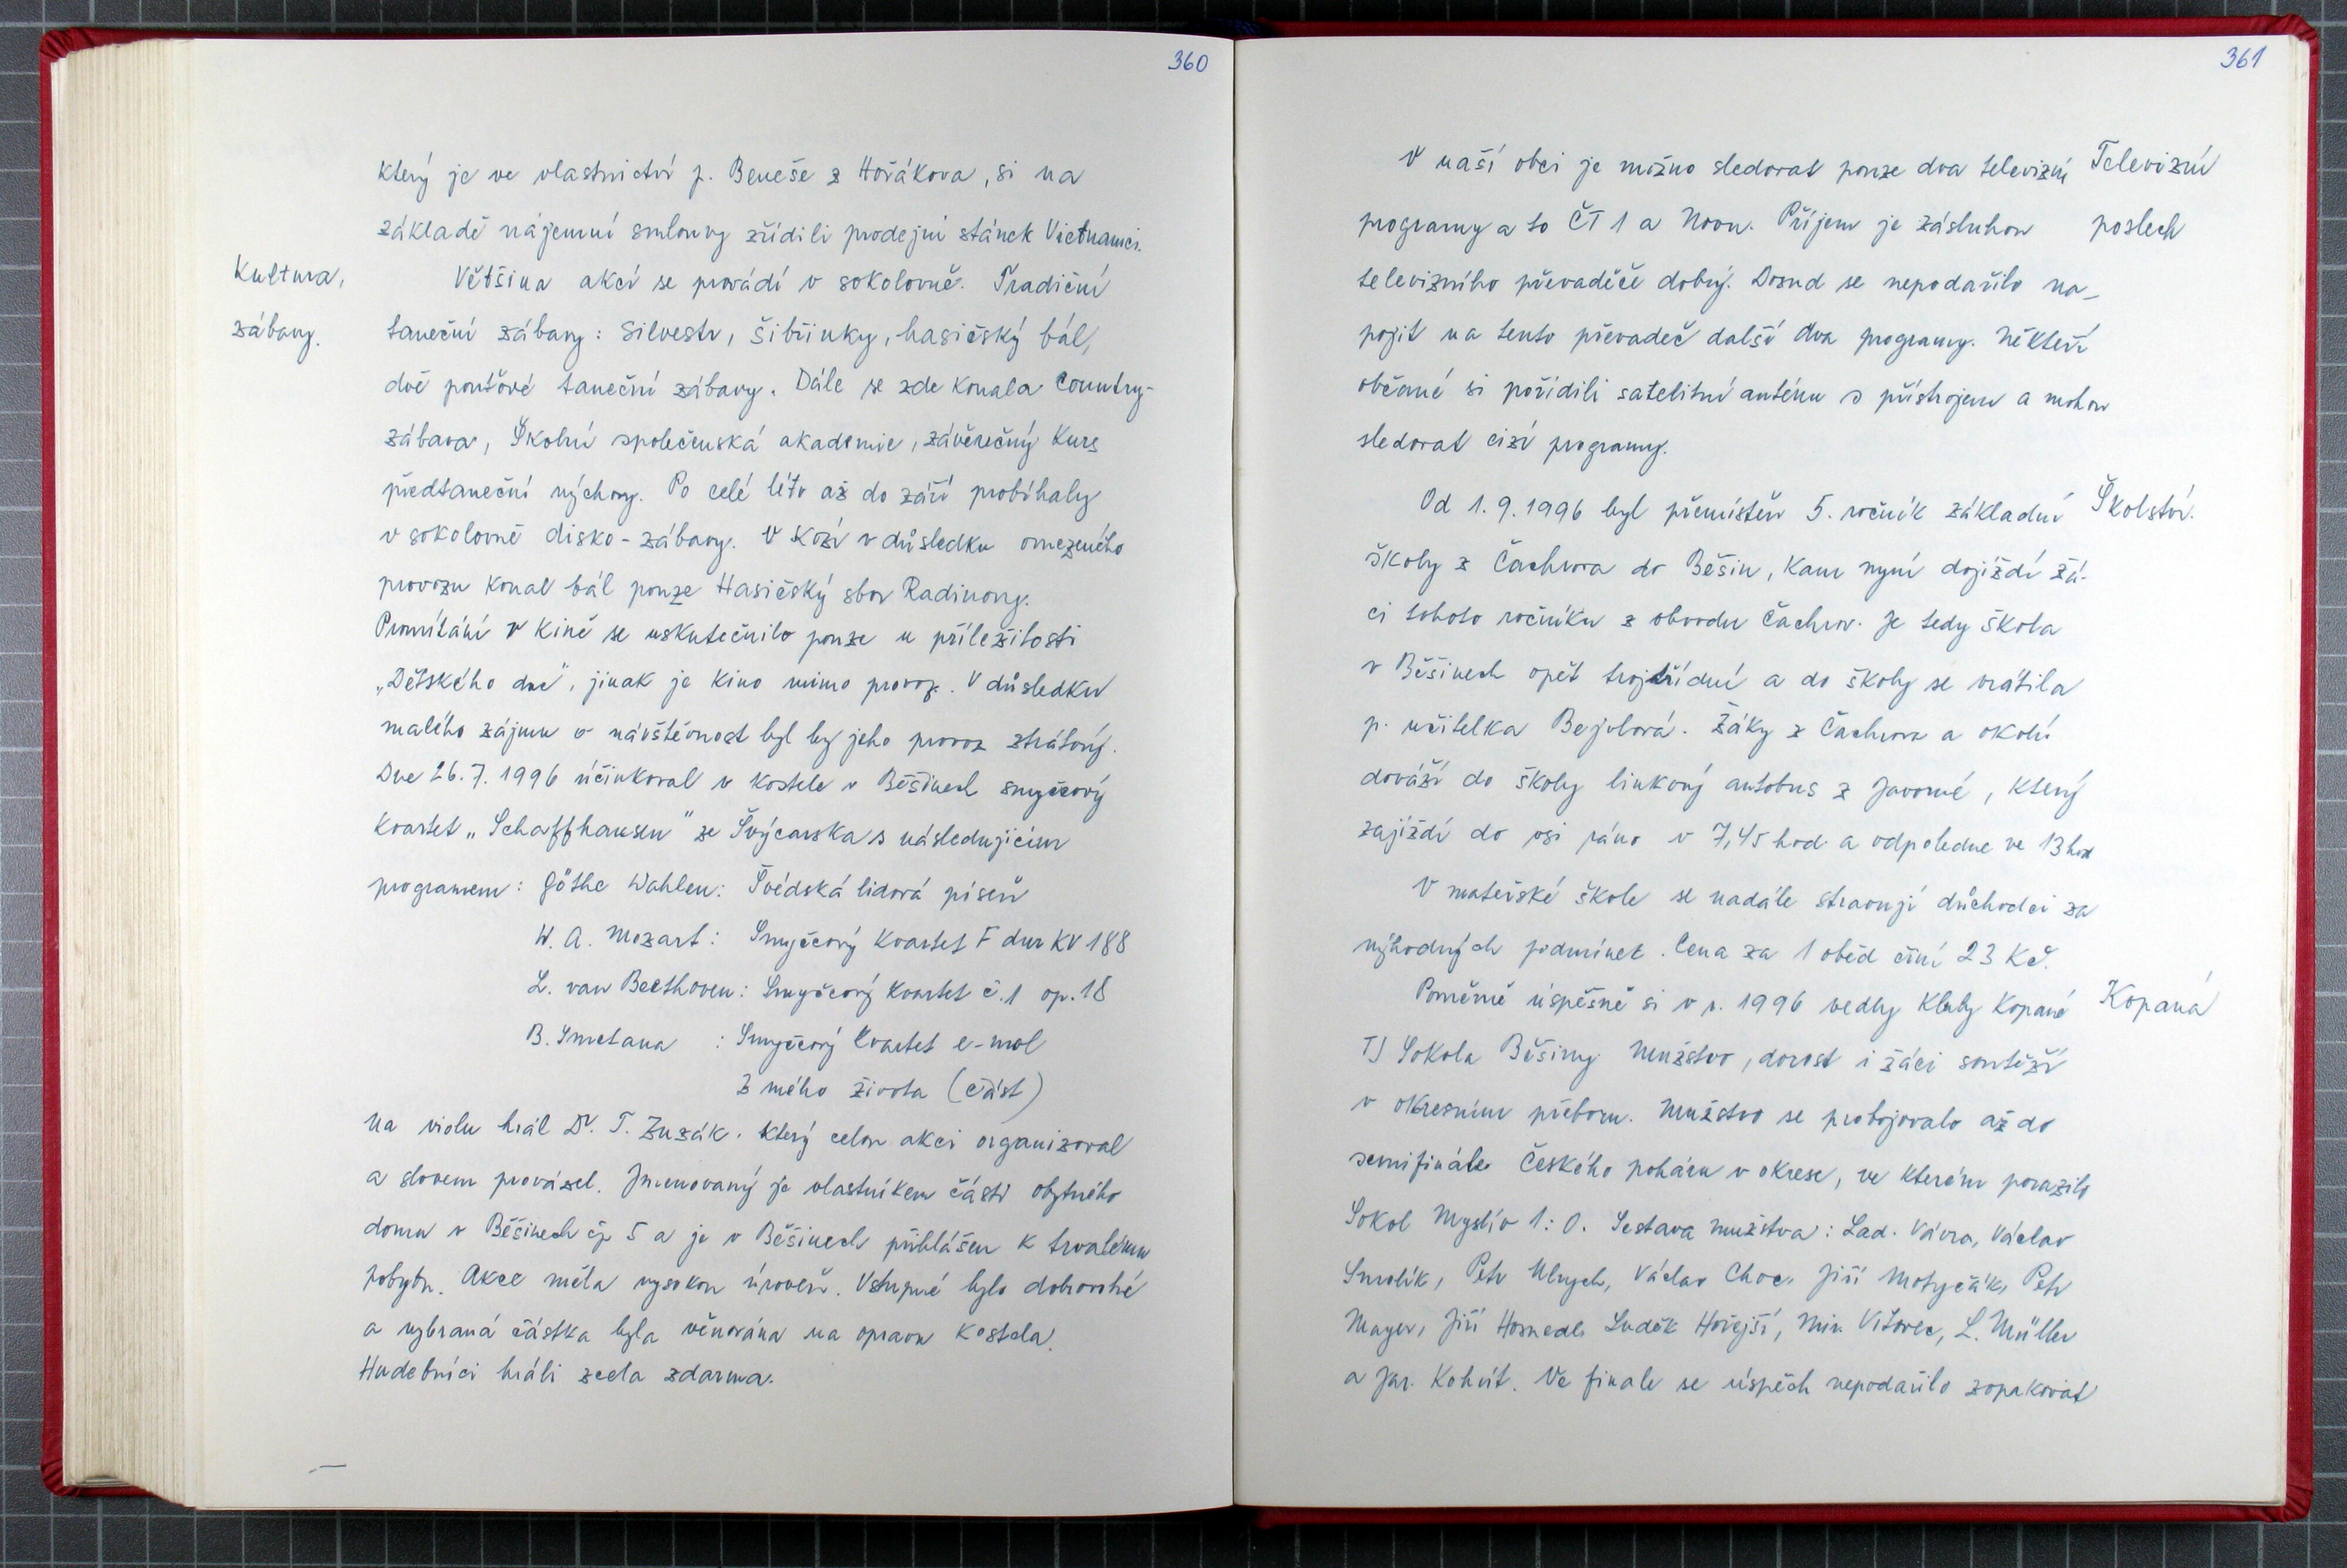 360
který je ve vlastnictví p. Beneše z Hořákova, si na
základě nájemní smlouvy zřídili prodejní stánek Vietnamci.
Kultura,
zábavy.
Většina akcí se provádí v sokolovně. Tradiční
taneční zábavy: Silvestr, Šibřinky, hasičský bál,
dvě pouťové taneční zábavy. Dále se zde konala Country-
zábava, Školní společenská akademie, závěrečný Kurs
předtaneční výchovy. Po celé léto až do září probíhaly
v sokolovně disko-zábavy. V Kozí v důsledku omezeného
provozu konal bál pouze Hasičský sbor Radinovy.
Promítání v Kině se uskutečnilo pouze u příležitosti
„Dětského dne", jinak je Kino mimo provoz. V důsledku
malého zájmu o návštěvnost byl by jeho provoz ztrátový.
Dne 26.7.1996 účinkoval v Kostele v Běšinech smyčcový
kvartet „Schaffhausen" ze Švýcarska s následujícím
programem: Göthe Wahlen: Švédská lidová píseň
W. A. Mozart: Smyčcový Kvartet F dur KV 188
L. van Beethoven: Smyčcový Kvartet č.1 op.18
B. Smetana : Smyčcový Kvartet e-mol
Z mého života (část)
Na violu hrál Dr. T. Zuzák, který celou akci organizoval
a slovem provázel. Jmenovaný je vlastníkem části obytného
domu v Běšinech čp 5 a je v Běšinech přihlášen k trvalému
pobytu. Akce měla vysokou úroveň. Vstupné bylo dobrovolné
a vybraná částka byla věnována na opravu Kostela.
Hudebníci hráli zcela zdarma.
361
V naší obci je možno sledovat pouze dva televizní
Televizní
programy a to ČT 1 a Novu. Příjem je zásluhou
poslech
televizního převaděče dobrý. Dosud se nepodařilo na-
pojit na tento převaděč další dva programy. Někteří
občané si pořídili satelitní anténu s přístrojem a mohou
sledovat cizí programy.
Od 1.9.1996 byl přemístěn 5. ročník základní
Školství.
školy z Čachrova do Běšin, Kam nyní dojíždí žá-
ci tohoto ročníku z obvodu Čachrov. Je tedy škola
v Běšinech opět trojtřídní a do školy se vrátila
p. učitelka Bejvlová. Žáky z Čachrova a okolí
dováží do školy linkový autobus z Javorné, Který
zajíždí do vsi ráno v 7,45 hod. a odpoledne ve 13 hod
V mateřské škole se nadále stravují důchodci za
výhodných podmínek. Cena za 1 oběd činí 23 Kč.
Poměrně úspěšně si v r. 1996 vedly Kluby Kopané
Kopaná
TJ Sokola Běšiny Mužstvo, dorost i žáci soutěží
v okresním přeboru. Mužstvo se probojovalo až do
semifinále Českého poháru v okrese, ve kterém porazilo
Sokol Myslív 1:0. Sestava mužstva: Lad. Vávra, Václav
Smolík, Petr Ulrych, Václav Choc, Jiří Motyčák, Petr
Mayer, Jiří Hosnedl, Luděk Hořejší, Mir. Vítovec, L. Müller
a Jar. Kohút. Ve finale se úspěch nepodařilo zopakovat